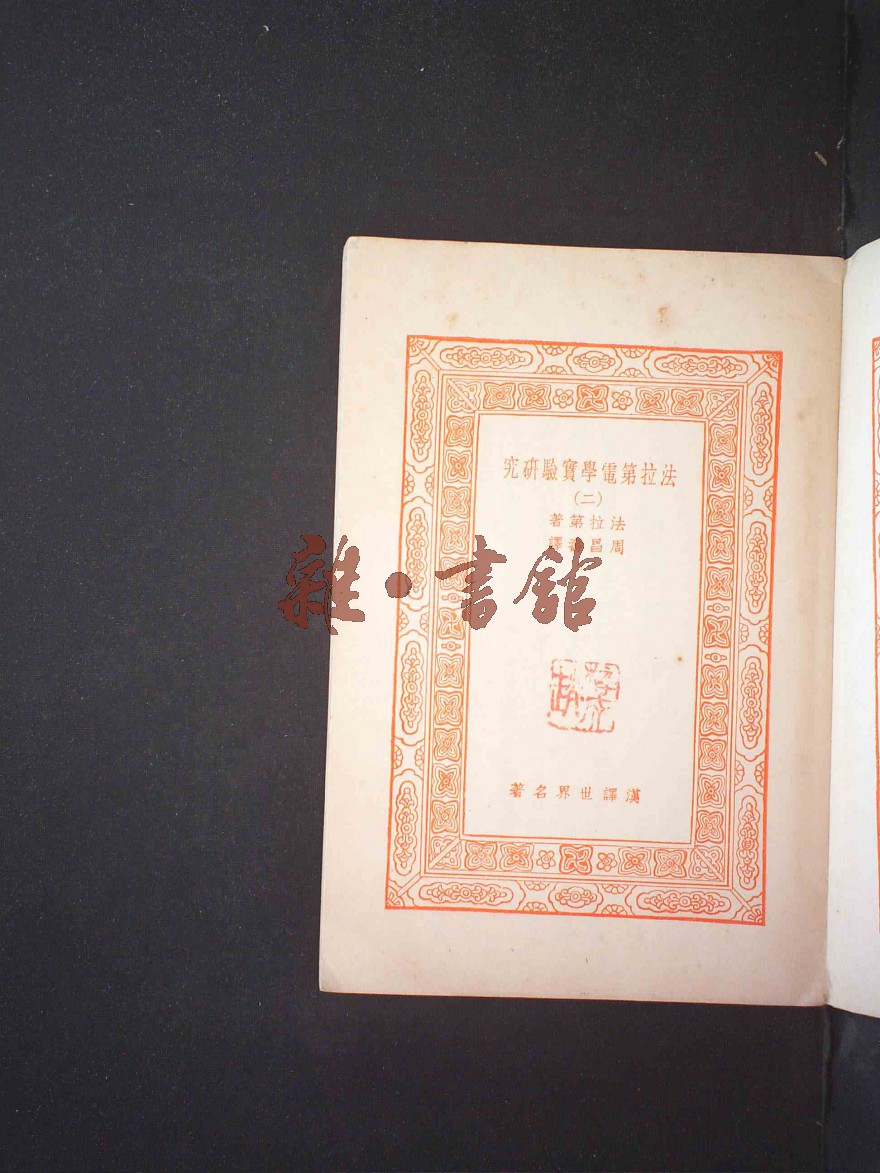 法拉第電學實驗研究
(二)
法拉第著
周昌壽譯
雜·書館
漢譯世界名著